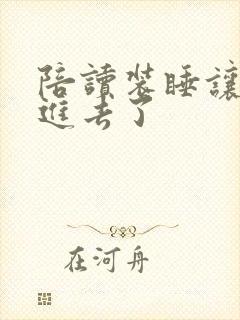 陪讀裝睡讓
進去了
在河舟